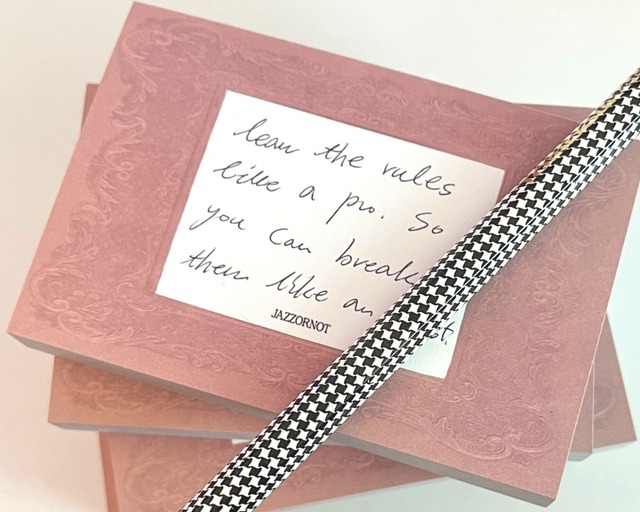 lean the rules
like a pro. So
you can break
them like an
JAZZORNOT